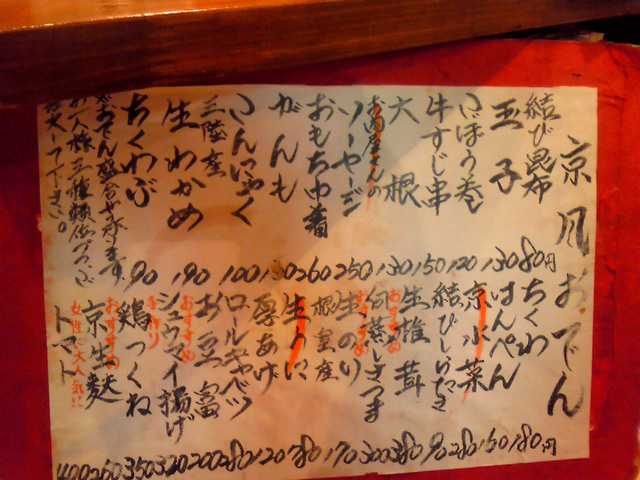 京風おでん
結び昆布 80円
玉子 130
ごぼう巻 120
牛すじ串 150
大根 130
お肉屋さんの
ソーセージ 250
おもち巾着 260
がんも 130
こんにゃく 100
三陸産
生わかめ 190
ちくわぶ 90
おでん盛合せ承ります。
お人様三種類位づつご
注文下さい。
ちくわ 180円
はんぺん 160
京水菜 280
結びしらたき 90
生椎茸 380
おすすめ
蒸しさつま 300
おすすめ
生のり 170
根室産
生うに 780
厚あげ 120
ロールキャベツ 280
お豆富 200
おすすめ
シュウマイ揚げ 320
手作り
鶏つくね 350
おすすめ
京生麩 260
女性に大人気!!
トマト 400